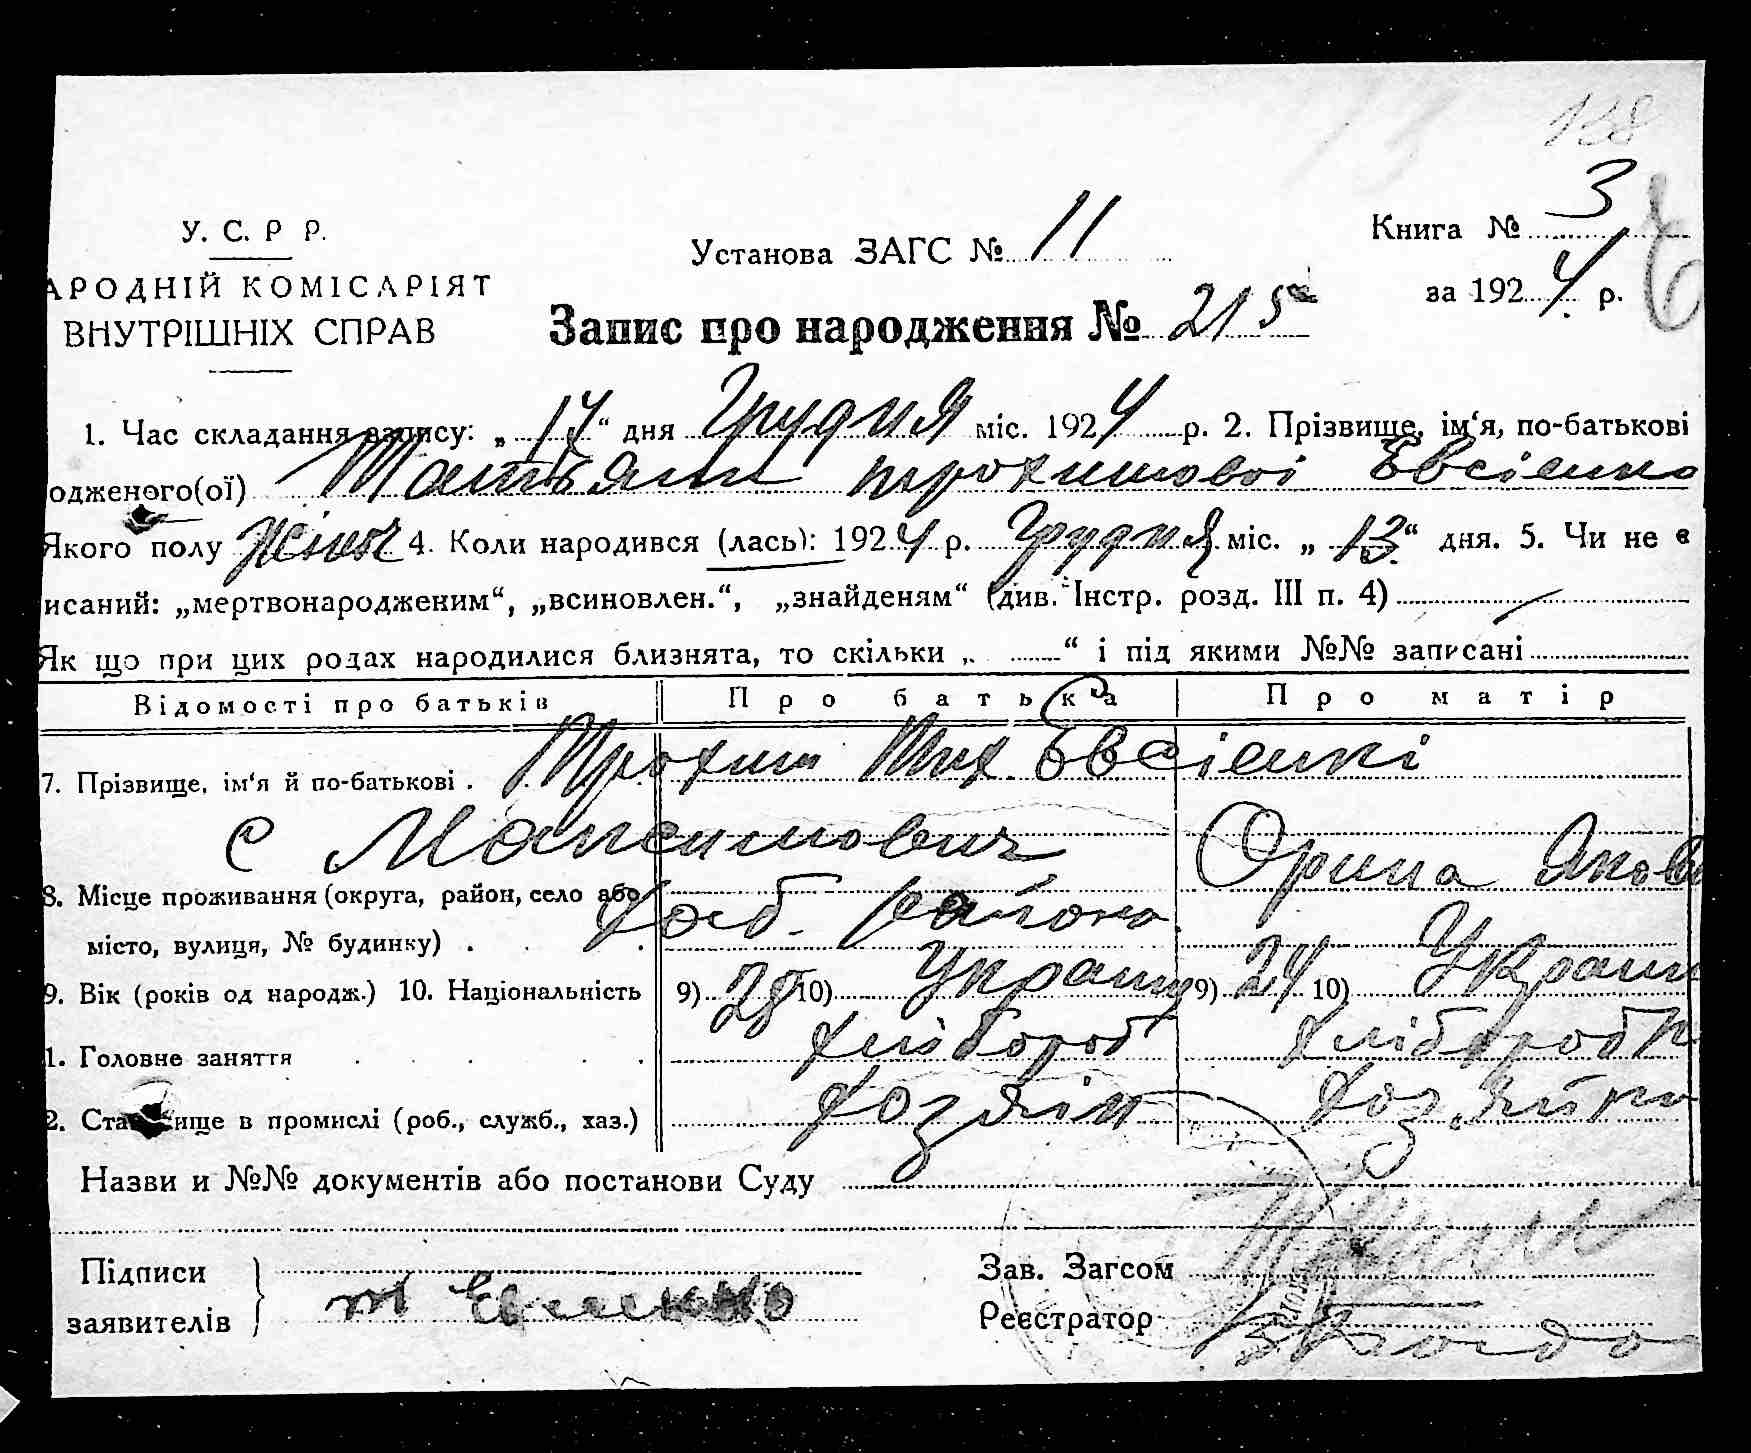 138
У. С. Р Р.
АРОДНІЙ КОМІСАРІЯТ
ВНУТРІШНІХ СПРАВ
Установа ЗАГС № 11
Книга № 3
за 1924 р.
Запис про народження № 215
1. Час складання запису: „17“ дня Грудня міс. 1924 р. 2. Прізвище, ім‘я, по-батькові
одженого(ої) Татьяни трохимової Євсієнко
Якого полу Жіноч 4. Коли народився (лась): 1924 р. Грудня міс. „13“ дня. 5. Чи не є
исаний: „мертвонародженим“, „всиновлен.“, „знайденям“ (див. Інстр. розд. III п. 4)
Як що при цих родах народилися близнята, то скільки „ “ і під якими №№ записані
Відомості про батьків Про батька Про матір
7. Прізвище, ім‘я й по-батькові . Трохим Тих. Євсієнкі
с Максимович Орина Яков
8. Місце проживання (округа, район, село або
місто, вулиця, № будинку) . Хаб. района
9. Вік (років од народж.) 10. Національність 9) 28 10) Украин 9) 24 10) Украин
1. Головне заняття хлібороб хліборобк
2. Становище в промислі (роб., служб., хаз.) хозяін хозяйка
Назви и №№ документів або постанови Суду
Підписи
заявителів т Евсиенко
Зав. Загсом
Реєстратор